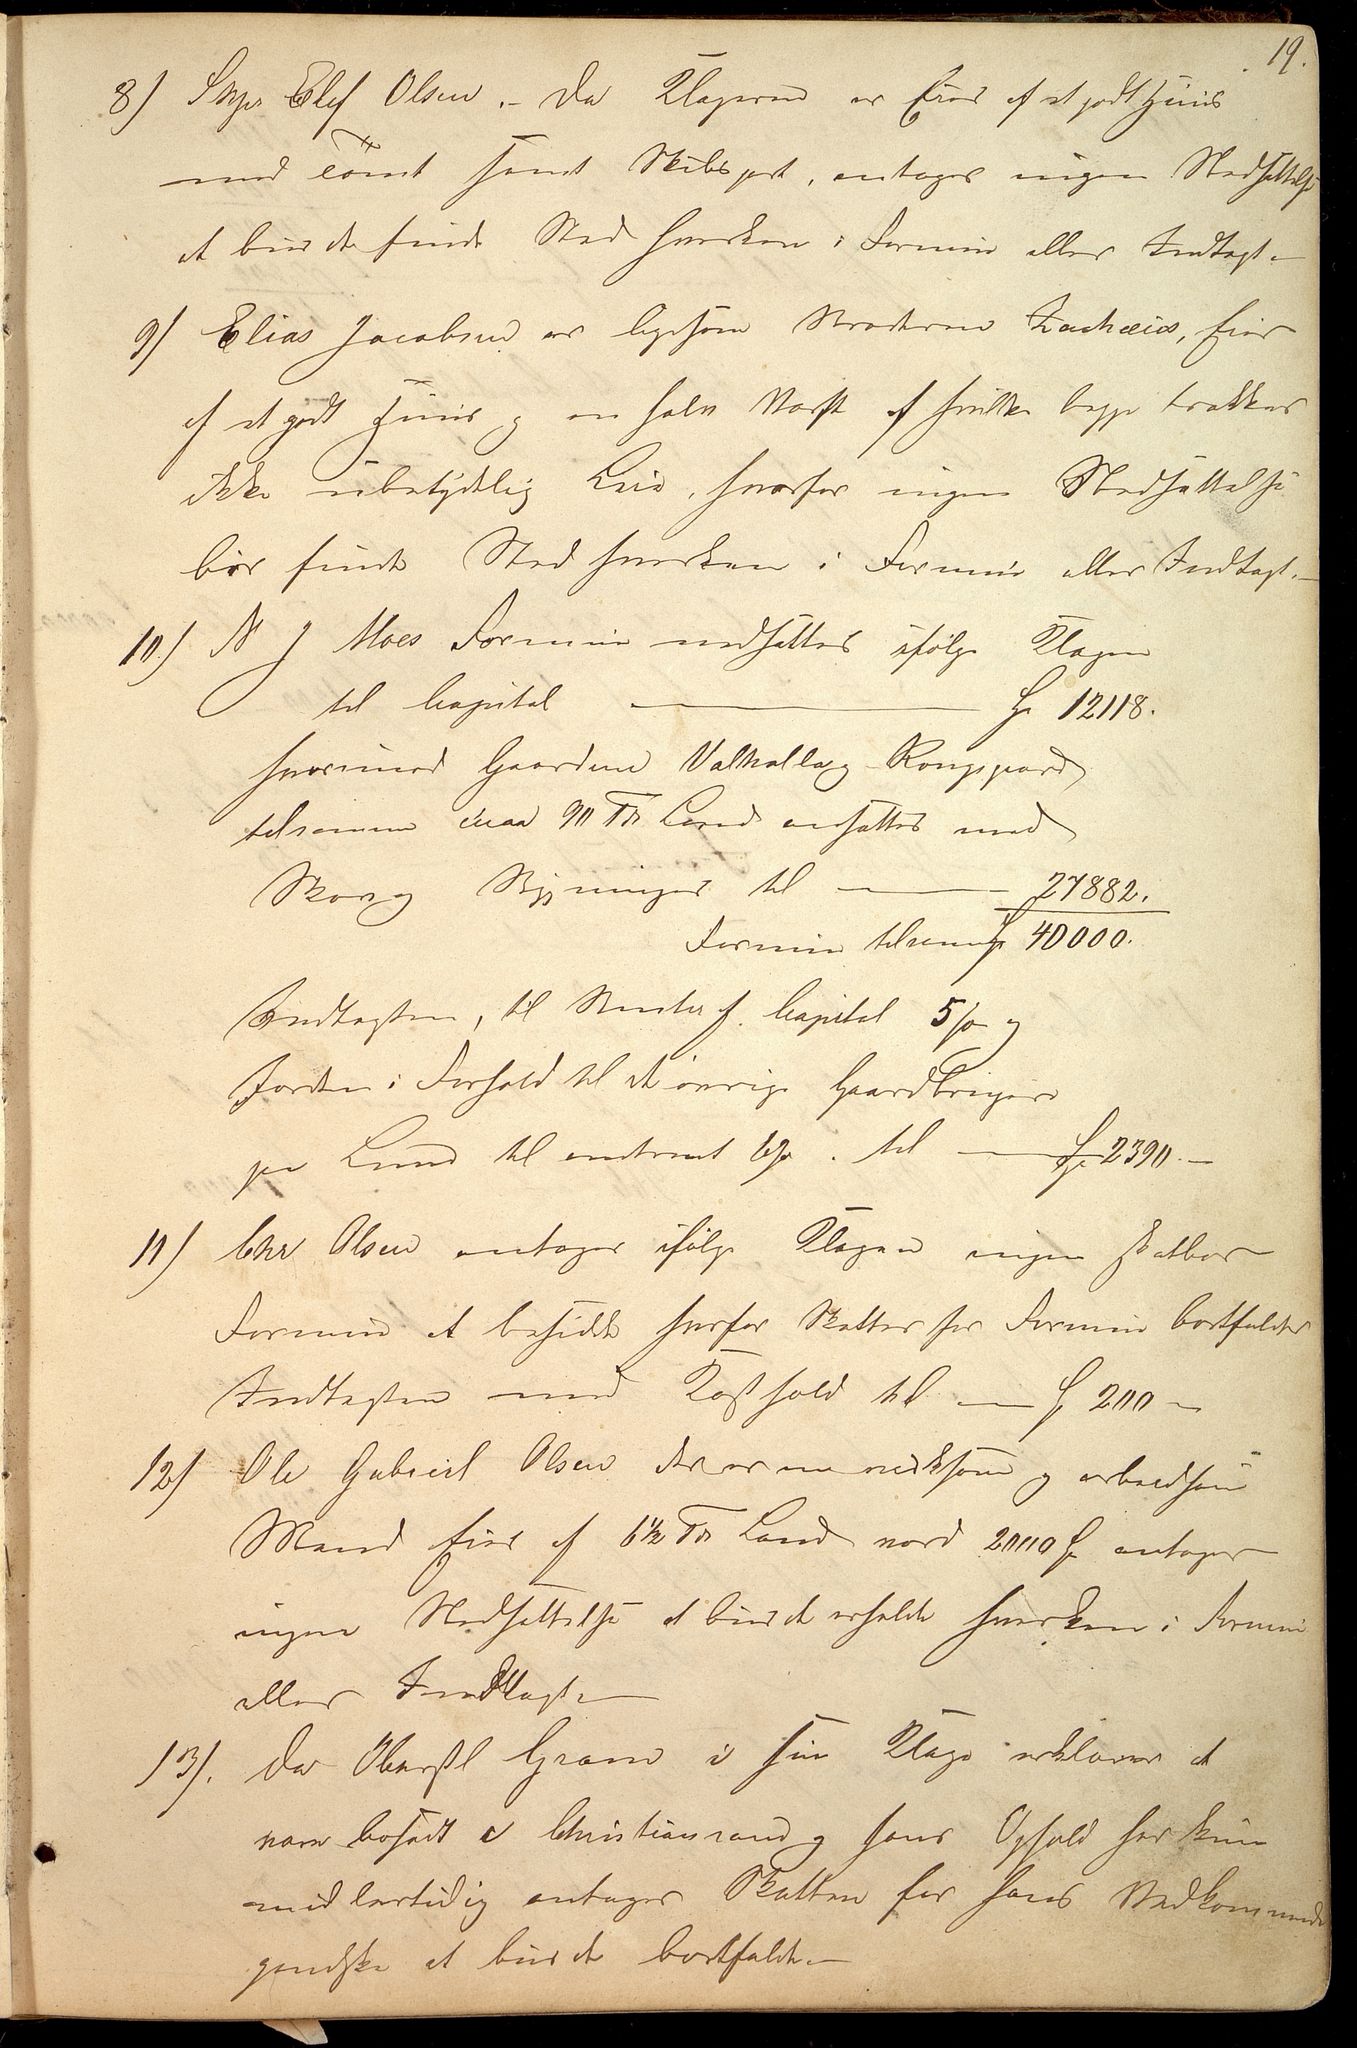 19.
8) Skpr Elef Olsen. – Da Klageren er Eier af et godt Huus
med Tomt samt Skibspart, antages ingen Nedsættelse
at burde finde Sted hverken i Formue eller Indtægt. –
9) Elias Jacobsen er ligesom Broderen Zachæus, Eier
af et godt Huus og en halv Værft af hvilke begge trækker
ikke ubetydelig Leie, hvorfor ingen Nedsættelse
bør finde Sted hverken i Formue eller Indtægt. –
10.) N J Moes Formue nedsættes ifølge Klagen
til Capital — 12118.
hvorimod Gaardene Valhalla og Kongsgaard
tilsammen circa 90 Td Land ansættes med
Skov og Bygninger til — 27882.
Formue tilsammen 40000.
Indtægten, til Renter af Capital 5 % og
Jorden i Forhold til de øvrige Gaardbrugere
paa Lund til omtrent 6 % til — 2390. –
11) Chr Olsen antages ifølge Klagen ingen skatbar
Formue at besidde hvorfor Skatten for Formue bortfalder
Indtægten med Kosthold til — 200 –
12) Ole Gabriel Olsen der er en virksom og arbeidsom
Mand Eier af 6½ Td Land værd 2000 antages
ingen Nedsættelse at burde erholde hverken i Formue
eller Indtægt. –
13). Da Oberstl Gram i sin Klage erklærer at
være bosadt i Christianssand og hans Ophold her kun
midlertidig antages Skatten for hans Vedkommende
gandske at burde bortfalde. –